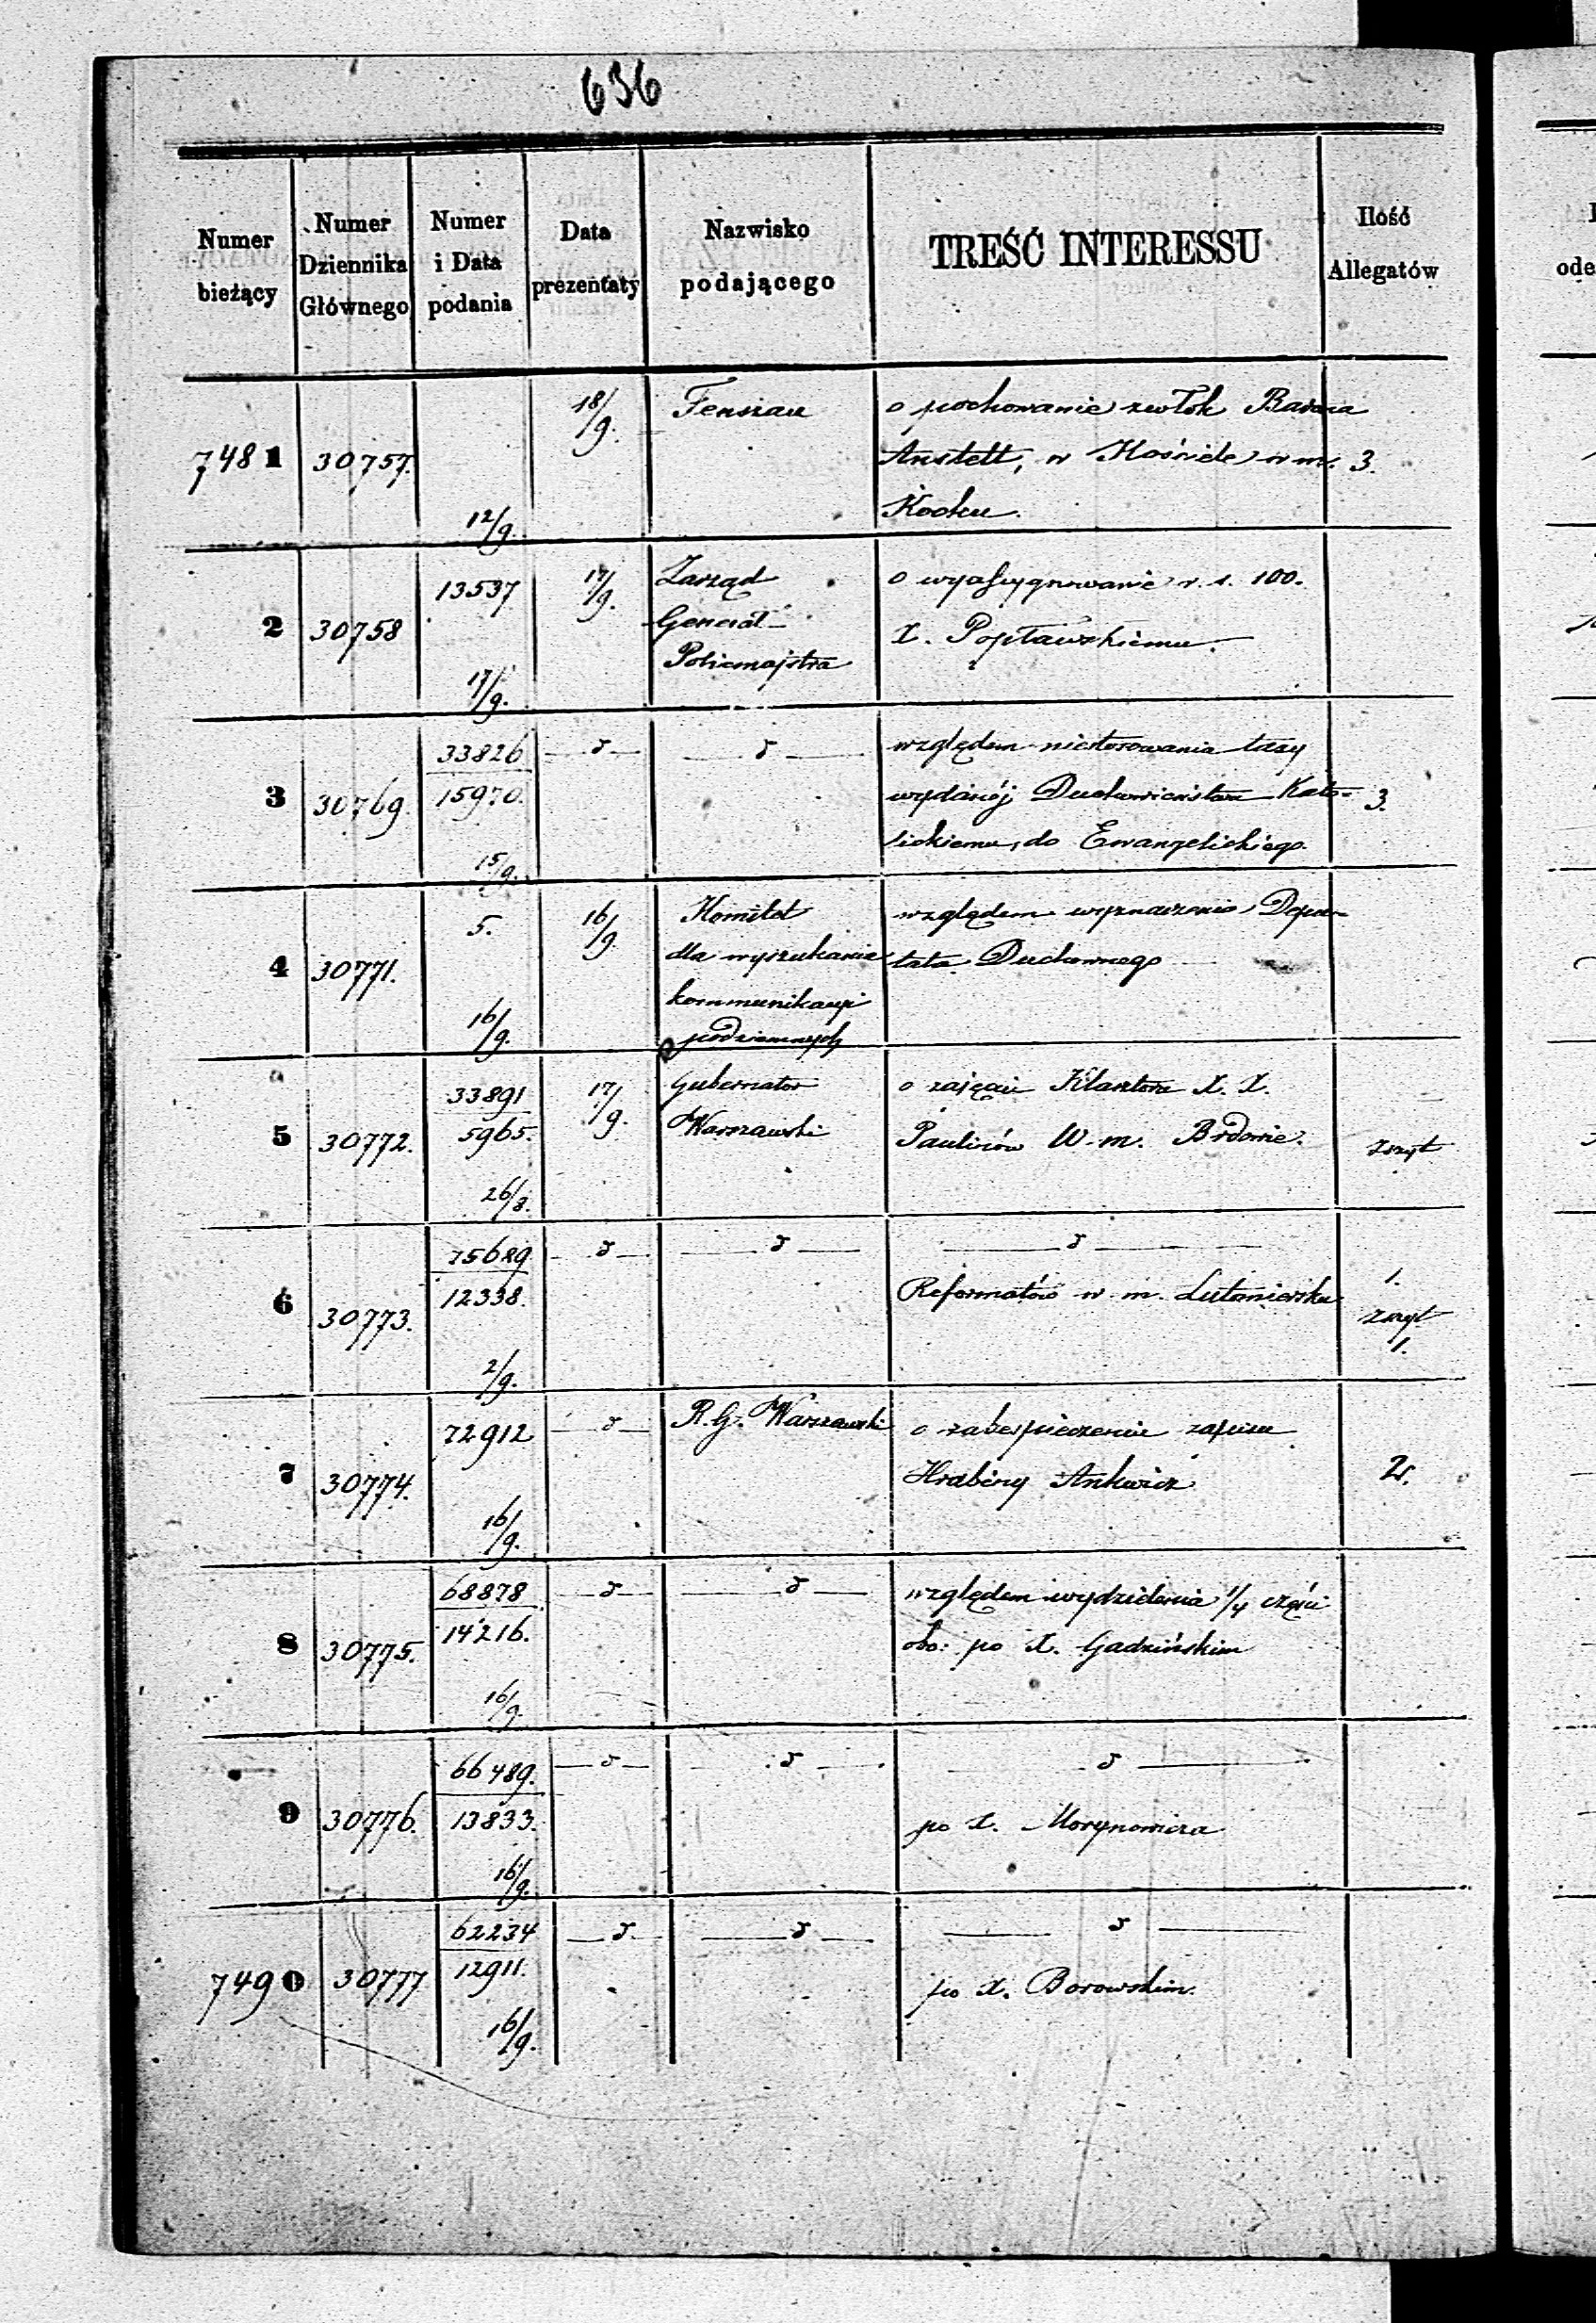 636
Numer bieżący
Numer Dziennika Głównego
Numer i Data podania
Data prezentaty
Nazwisko podającego
TREŚĆ INTERESSU
Ilość Allegatów
7481 30757. 12/9. 18/9. Fenszau o pochowanie zwłok Barona
Anstett, w Kościele w m. 3.
Kocku.
2 30758 13537 17/9. 17/9. Zarząd o wyassygnowanie r. s. 100.
Generał X. Popławskiemu.
Policmajstra
3 30769. 33826 15970. 15/9. — d — — d — względem niestosowania taxy
wydanéj Duchowieństwu Kato- 3.
lickiemu, do Ewangelickiego.
4 30771. 5. 16/9. 16/9 Komitet względem wyznaczenia Depu-
dla wyszukania tata Duchownego
kommunikacyi
podziemnych
5 30772. 33891 5965. 26/8. 17/9. Gubernator o zajęciu Klasztoru X. X.
Warszawski Paulinów W m. Brdowie. zszyt
6 30773. 75689 12338. 2/9. — d — — d — — d — 1.
Reformatów w m. Lutomiersku zszyt
1.
7 30774. 72912 16/9. — d — R. G. Warszawski o zabezpieczenie zapisu
Hrabiny Ankwicz 2.
8 30775. 68878 14216. 16/9. — d — — d — względem wydzielenia 1/4 części
obo: po X. Gadzińskim
9 30776. 66489. 13833. 16/9. — d — — d — — d —
po X.
7490 30777 62234 12911. 16/9. — d — — d — — d —
po X. Borowskim.